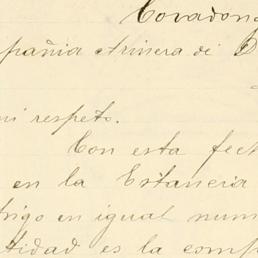 Covadon
pañia Minera de
mi respeto.
Con esta fec
en la Estancia
trigo en igual num
tidad es la comp